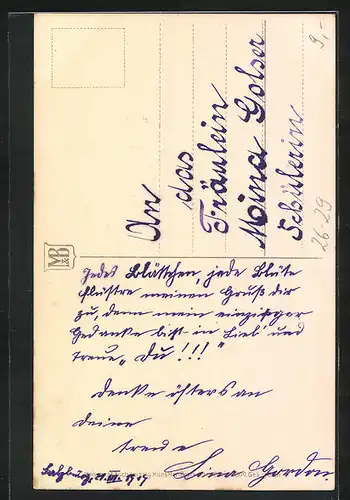 An
das
Fräulein
Mina Golser
Schülerin
9,-
26-29
M&B
Jedes Blättchen, jede Blüte
flüstre meinen Gruß dir
zu, denn mein einziger
Gedanke bist in Lieb' und
Treue „Du!!!"
Denke öfters an
deine
treue
Lina Gordon
Salzburg,